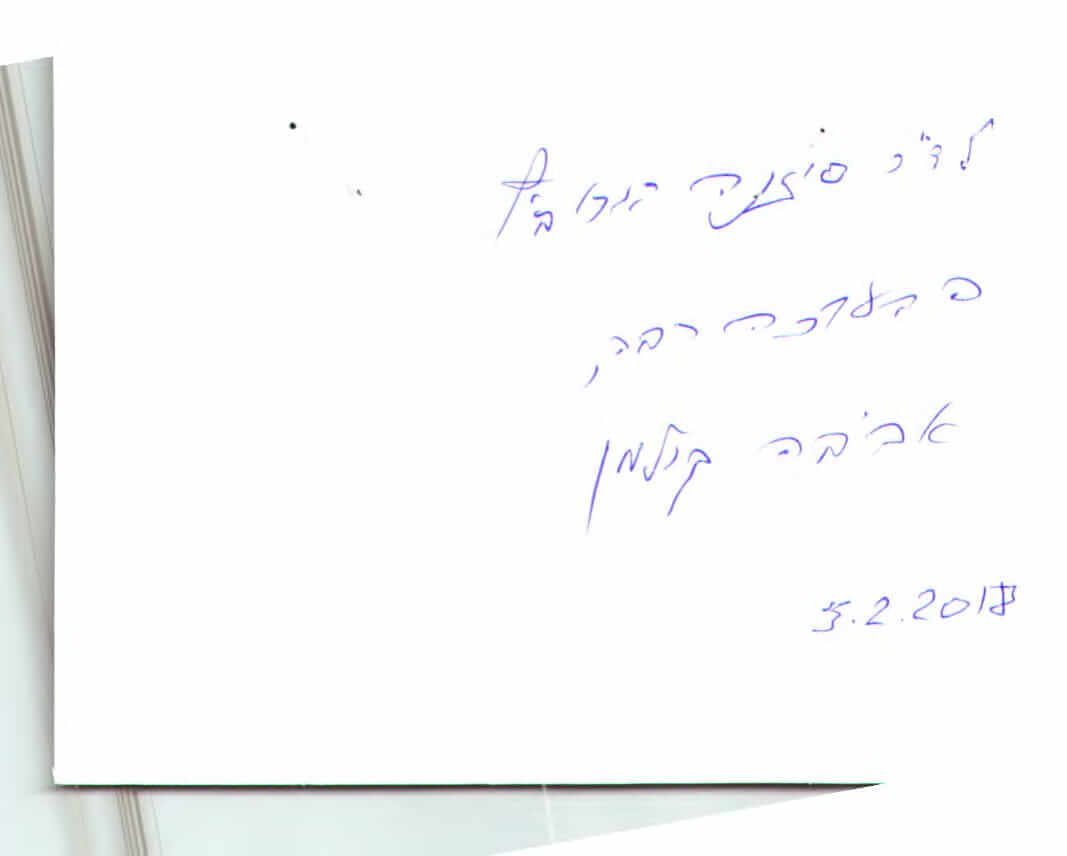 לד"ר סוזנה
בהערכה רבה,
אביבה קולמן
5.2.2018